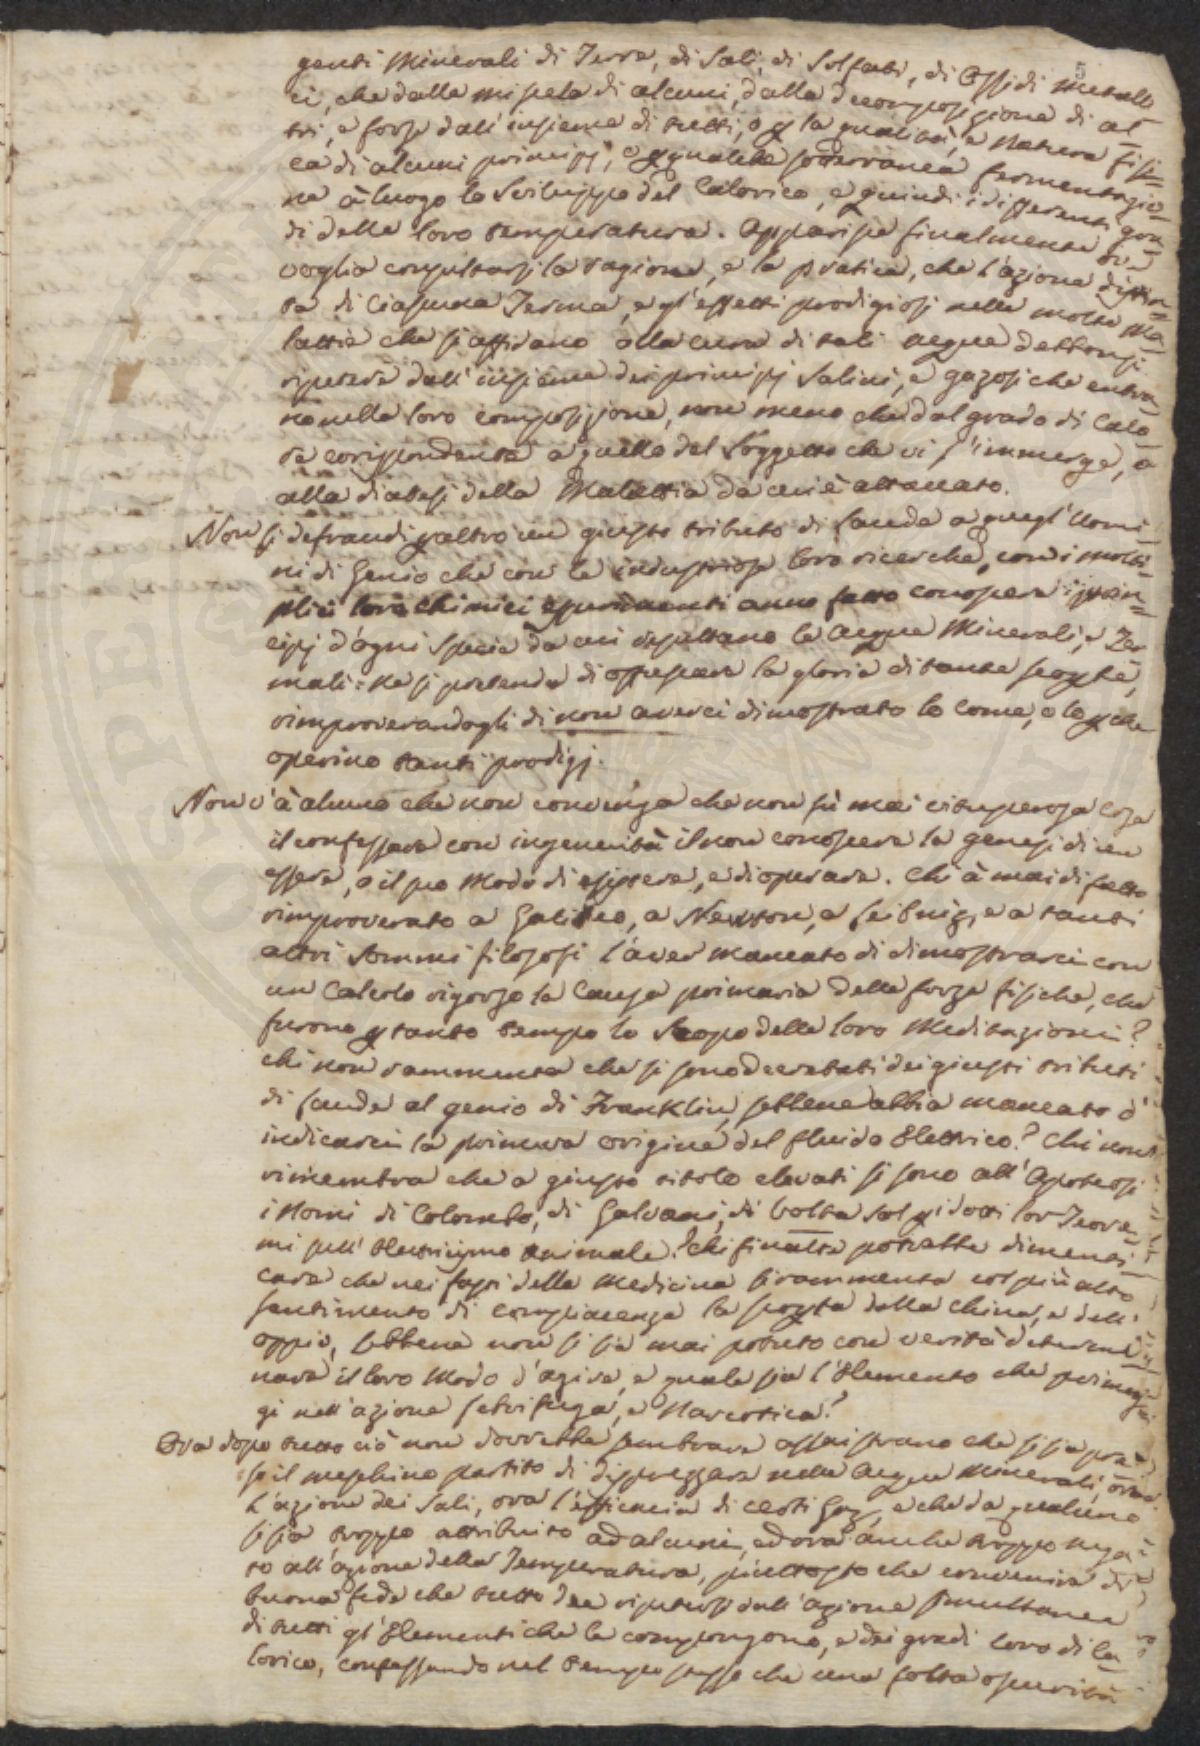 5
genti Minerali di Terre, di Sali, di Solfati, di Ossidi metalli
ci, che dalla miscela di alcuni, dalla decomposizione di al=
tri, e forse dall'insieme di tutti, o p la qualità, e Natura fisi=
ca di alcuni principj, o p qualche sotterranea fermentazio=
ne à luogo lo sviluppo del Calorico, e quindi i differenti gra=
di della loro temperatura. Apparisce finalmente ove
voglia consultarsi la ragione, e la pratica, che l'azione distin=
ta di Ciascuna Terma, e gl'effetti prodigiosi nelle molte Ma=
lattie che si affidano alla cura di tali acque debbonsi
ripetere dall'insieme dei principj Salini, e gazosi che entra=
no nella loro composizione, non meno che dal grado di Calo=
re corrispondente a quello del Soggetto che vi s'immerge, o
alla diatesi della Malattia da cui è attaccato.
Non si defraudi p altro un giusto tributo di Laude a quegl'Uomi=
ni di Genio che con le industriose loro ricerche, con i molti=
plici loro chimici esperimenti anno fatto conoscere i prin=
cipj d'ogni specie da cui resultano le Acque Minerali, e Ter=
mali: Ne si pretenda di offuscare la gloria di tante scoperte,
rimproverandogli di non averci dimostrato lo come, o lo pche
operino tanti prodigj.
Non v'à alcuno che non convenga che non fù mai vituperosa cosa
il confessare con ingenuità il non conoscere la genesi di un
essere, o il suo Modo di esistere, e di operare. Chi à mai di fatto
rimproverato a Galileo, a Newton, a Leibniz, e a tanti
altri sommi filosofi l'aver mancato di dimostrarci con
un Calcolo rigoroso la Causa primaria delle forze fisiche, che
furono p tanto tempo lo Scopo delle loro Meditazioni?
chi non rammenta che si sono decretati dei giusti tributi
di Laude al genio di Franklin, sebbene abbia mancato d'
indicarci la primeva origine del fluido Elettrico? Chi non
rimembra che a giusto titolo elevati si sono all'Apoteosi
i Nomi di Colombo, di Galvani, di Volta sol p i dotti lor Teore=
mi sull'Elettricismo animale? chi finalte potrebbe dimenti=
care che nei fasti della Medicina si rammenta col più alto
sentimento di compiacenza la scoperta della China, e dell'
oppio, sebbene non si sia mai potuto con verità determi=
nare il loro Modo d'agire, e quale sia l'Elemento che primeg=
gi nell'azione febrifuga, e Narcotica?
Ora dopo tutto ciò non dovrebbe sembrare assai strano che si sia pre=
so il meschino partito di disprezzare nelle Acque Minerali, ora
l'azione dei Sali, ora l'efficacia di certi Gaz, e che da qualcuno
si sia troppo attribuito ad alcuni, ed ora anche troppo nega=
to all'azione della Temperatura, piuttosto che convenire di
buona fede che tutto dee ripetersi dall'azione simultanea
di tutti gl'Elementi che le compongono, e dei gradi loro di Ca=
lorico, confessando nel tempo stesso che una folta oscurità